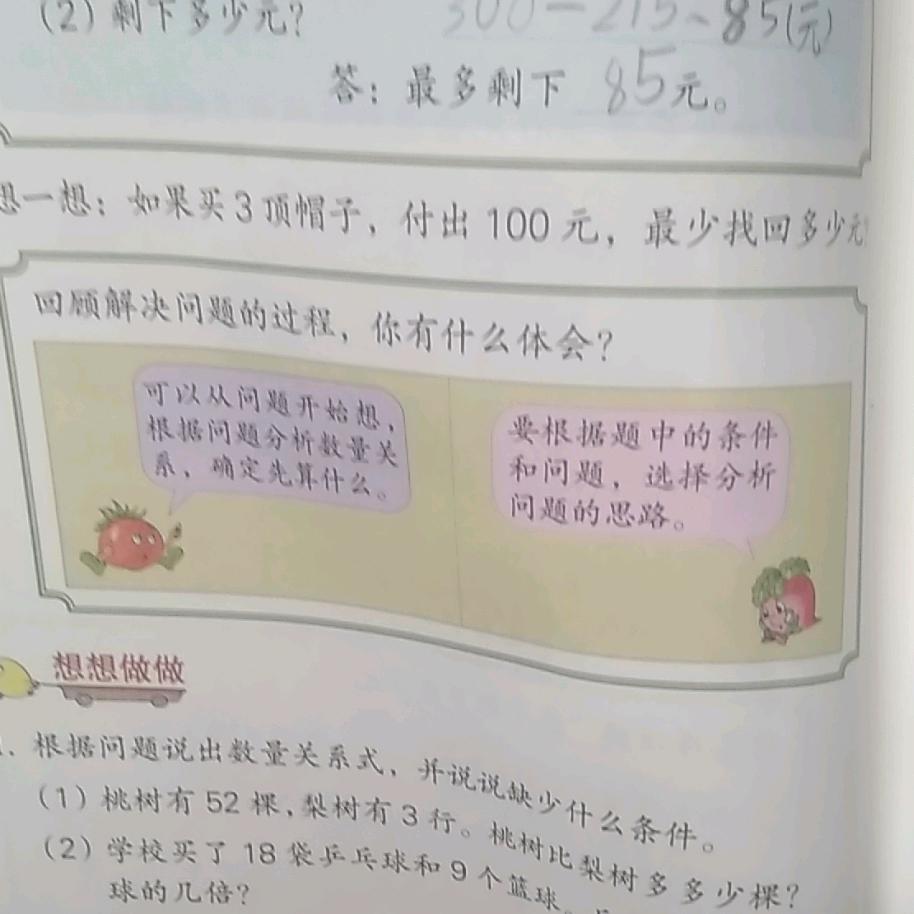 (2) 剩下多少元? 300－215＝85(元)
答：最多剩下 85元。
想一想：如果买3顶帽子，付出100元，最少找回多少元?
回顾解决问题的过程，你有什么体会?
可以从问题开始想，
根据问题分析数量关
系，确定先算什么。
要根据题中的条件
和问题，选择分析
问题的思路。
想想做做
根据问题说出数量关系式，并说说缺少什么条件。
(1) 桃树有52棵，梨树有3行。桃树比梨树多多少棵?
(2) 学校买了18袋乒乓球和9个篮球。
球的几倍?